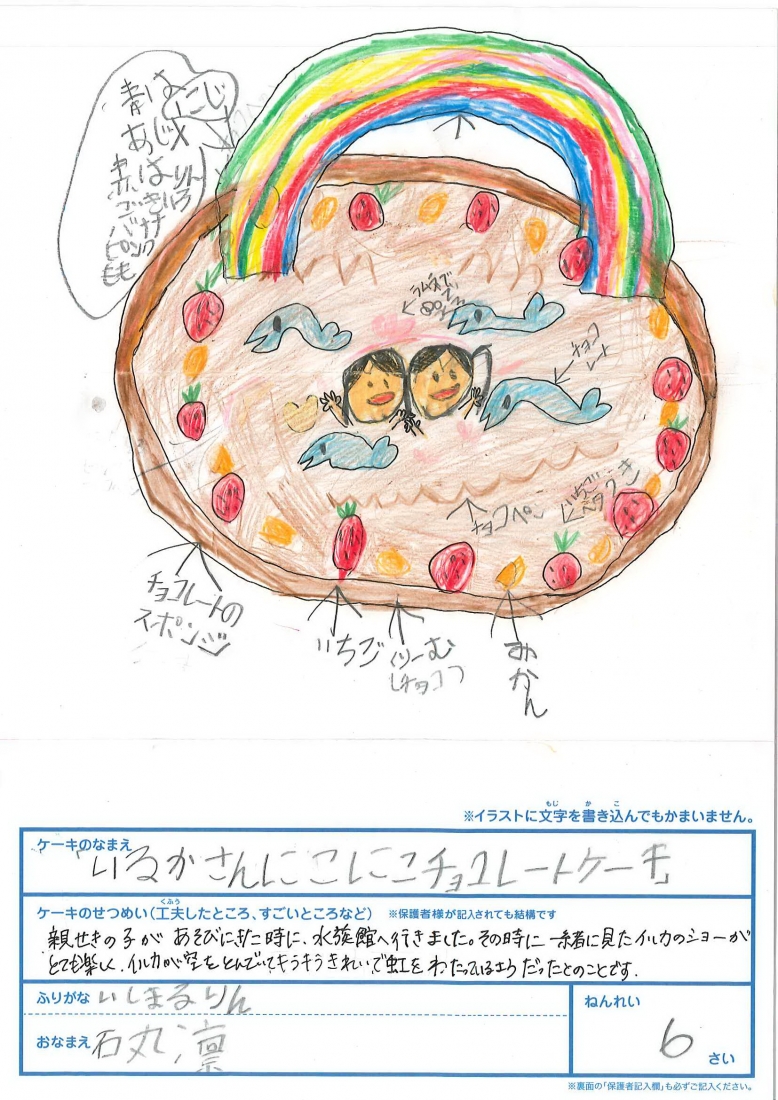 にじ
青は
あじ
赤はりんご
きいろ
バナナ
ピンク
もも
ラムネ
チョコ
レート
チョコペン
いちご
チョコレートの
スポンジ
いちご
くりーむ
(チョコ)
みかん
※イラストに文字を書き込んでもかまいません。
ケーキのなまえ
「いるかさんにこにこチョコレートケーキ」
ケーキのせつめい（工夫したところ、すごいところなど） ※保護者様が記入されても結構です
親せきの子があそびにきた時に、水族館へ行きました。その時に一緒に見たイルカのショーが
とても楽しく、イルカが空をとんでいてキラキラきれいで虹をわたっているようだったとのことです。
ふりがな いしまるりん
おなまえ 石丸凛
ねんれい
6 さい
※裏面の「保護者記入欄」も必ずご記入ください。